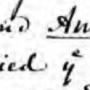 and An
ied yᵉ